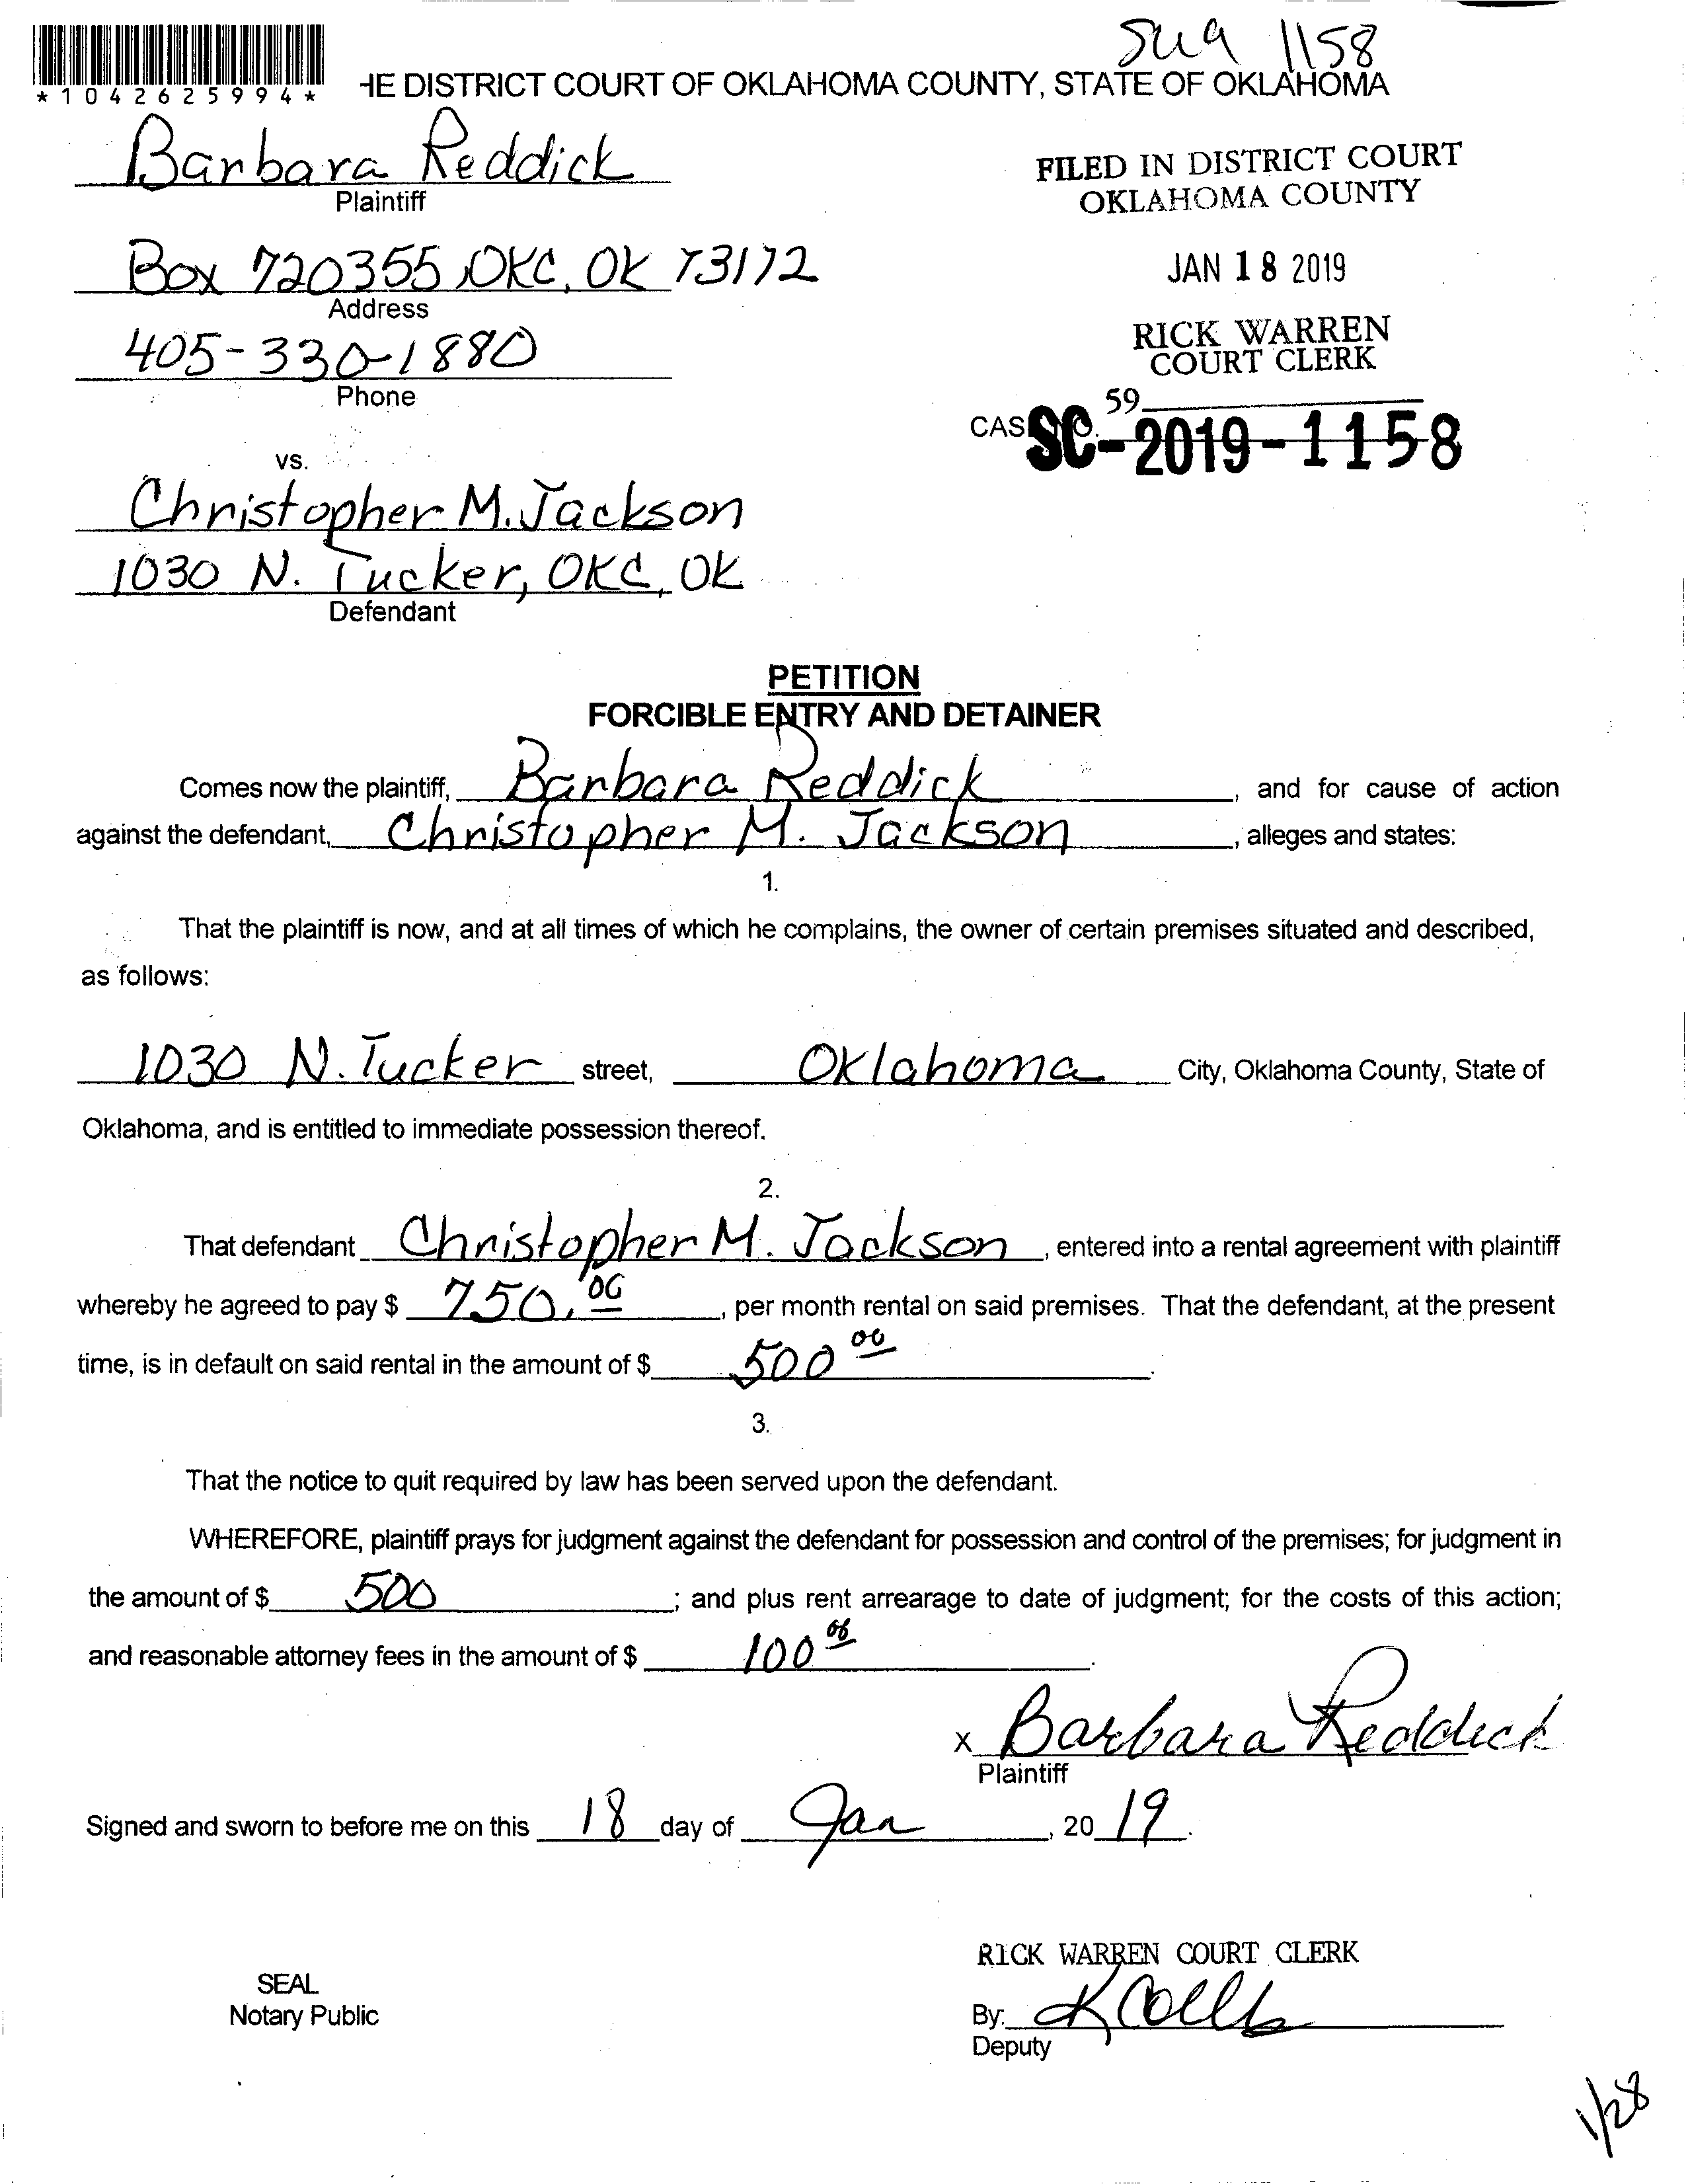 Sug 1158
*1042625994*
HE DISTRICT COURT OF OKLAHOMA COUNTY, STATE OF OKLAHOMA
Barbara Reddick
Plaintiff
FILED IN DISTRICT COURT
OKLAHOMA COUNTY
Box 720355, OKC, OK 73172
Address
JAN 18 2019
405-330-1880
Phone
RICK WARREN
COURT CLERK
59
CAS NO. SC-2019-1158
vs.
Christopher M. Jackson
1030 N. Tucker, OKC, OK
Defendant
PETITION
FORCIBLE ENTRY AND DETAINER
Comes now the plaintiff, Barbara Reddick, and for cause of action
against the defendant, Christopher M. Jackson, alleges and states:
1.
That the plaintiff is now, and at all times of which he complains, the owner of certain premises situated and described,
as follows:
1030 N. Tucker street, Oklahoma City, Oklahoma County, State of
Oklahoma, and is entitled to immediate possession thereof.
2.
That defendant Christopher M. Jackson, entered into a rental agreement with plaintiff
whereby he agreed to pay $ 750.00, per month rental on said premises. That the defendant, at the present
time, is in default on said rental in the amount of $ 500 00.
3.
That the notice to quit required by law has been served upon the defendant.
WHEREFORE, plaintiff prays for judgment against the defendant for possession and control of the premises; for judgment in
the amount of $ 500; and plus rent arrearage to date of judgment; for the costs of this action;
and reasonable attorney fees in the amount of $ 100 00.
X Barbara Reddick
Plaintiff
Signed and sworn to before me on this 18 day of Jan, 20 19.
RICK WARREN COURT CLERK
SEAL
Notary Public
By:
Deputy
1/28